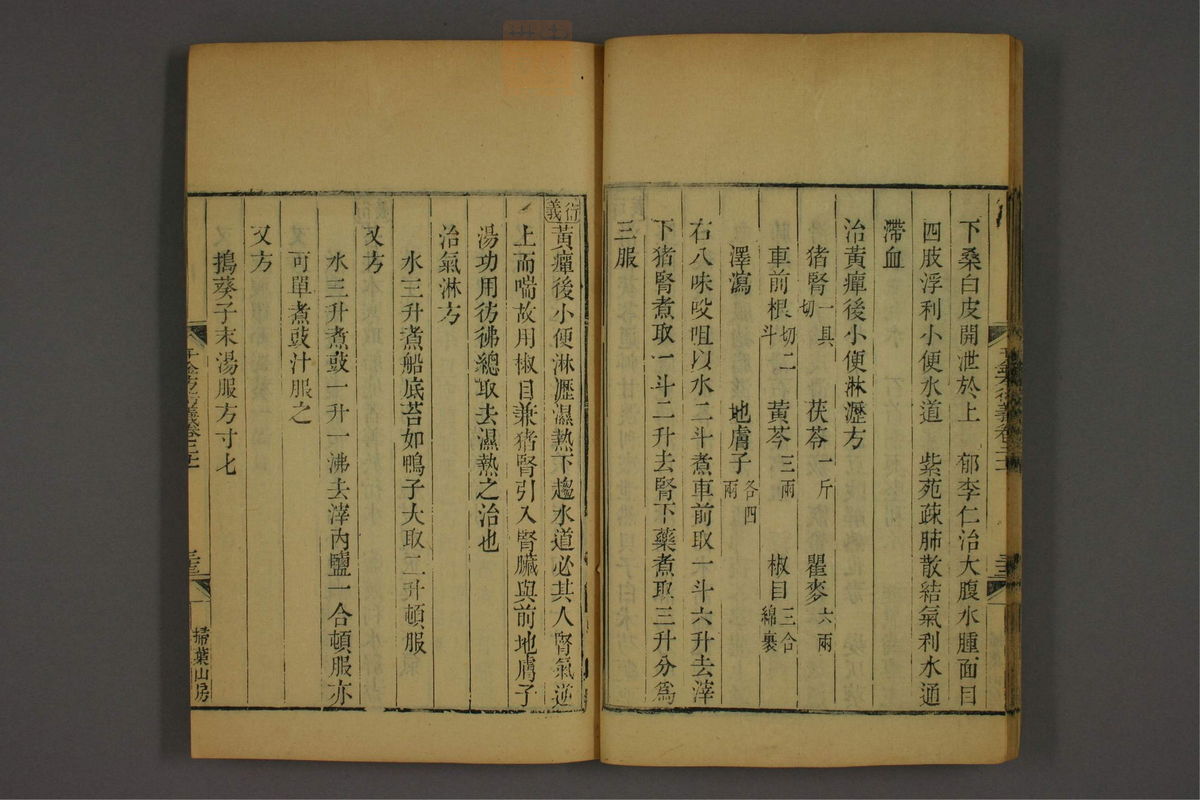 下桑白皮開泄於上　郁李仁治大腹水腫面目
四肢浮利小便水道　紫苑疎肺散結氣利水通
滯血
治黃癉後小便淋瀝方
猪腎一具切　茯苓一斤　瞿麥六兩
車前根切二斗　黃芩三兩　椒目三合綿裹
澤瀉　地膚子各四兩
右八味㕮咀以水二斗煮車前取一斗六升去滓
下猪腎煮取一斗二升去腎下藥煮取三升分爲
三服
衍義黃癉後小便淋瀝濕熱下趨水道必其人腎氣逆
上而喘故用椒目兼猪腎引入腎臟與前地膚子
湯功用彷彿總取去濕熱之治也
治氣淋方
水三升煮船底苔如鴨子大取二升頓服
又方
水三升煮豉一升一沸去滓內鹽一合頓服亦
可單煮豉汁服之
又方
搗葵子末湯服方寸七
千金方衍義卷二十一
三三
掃葉山房